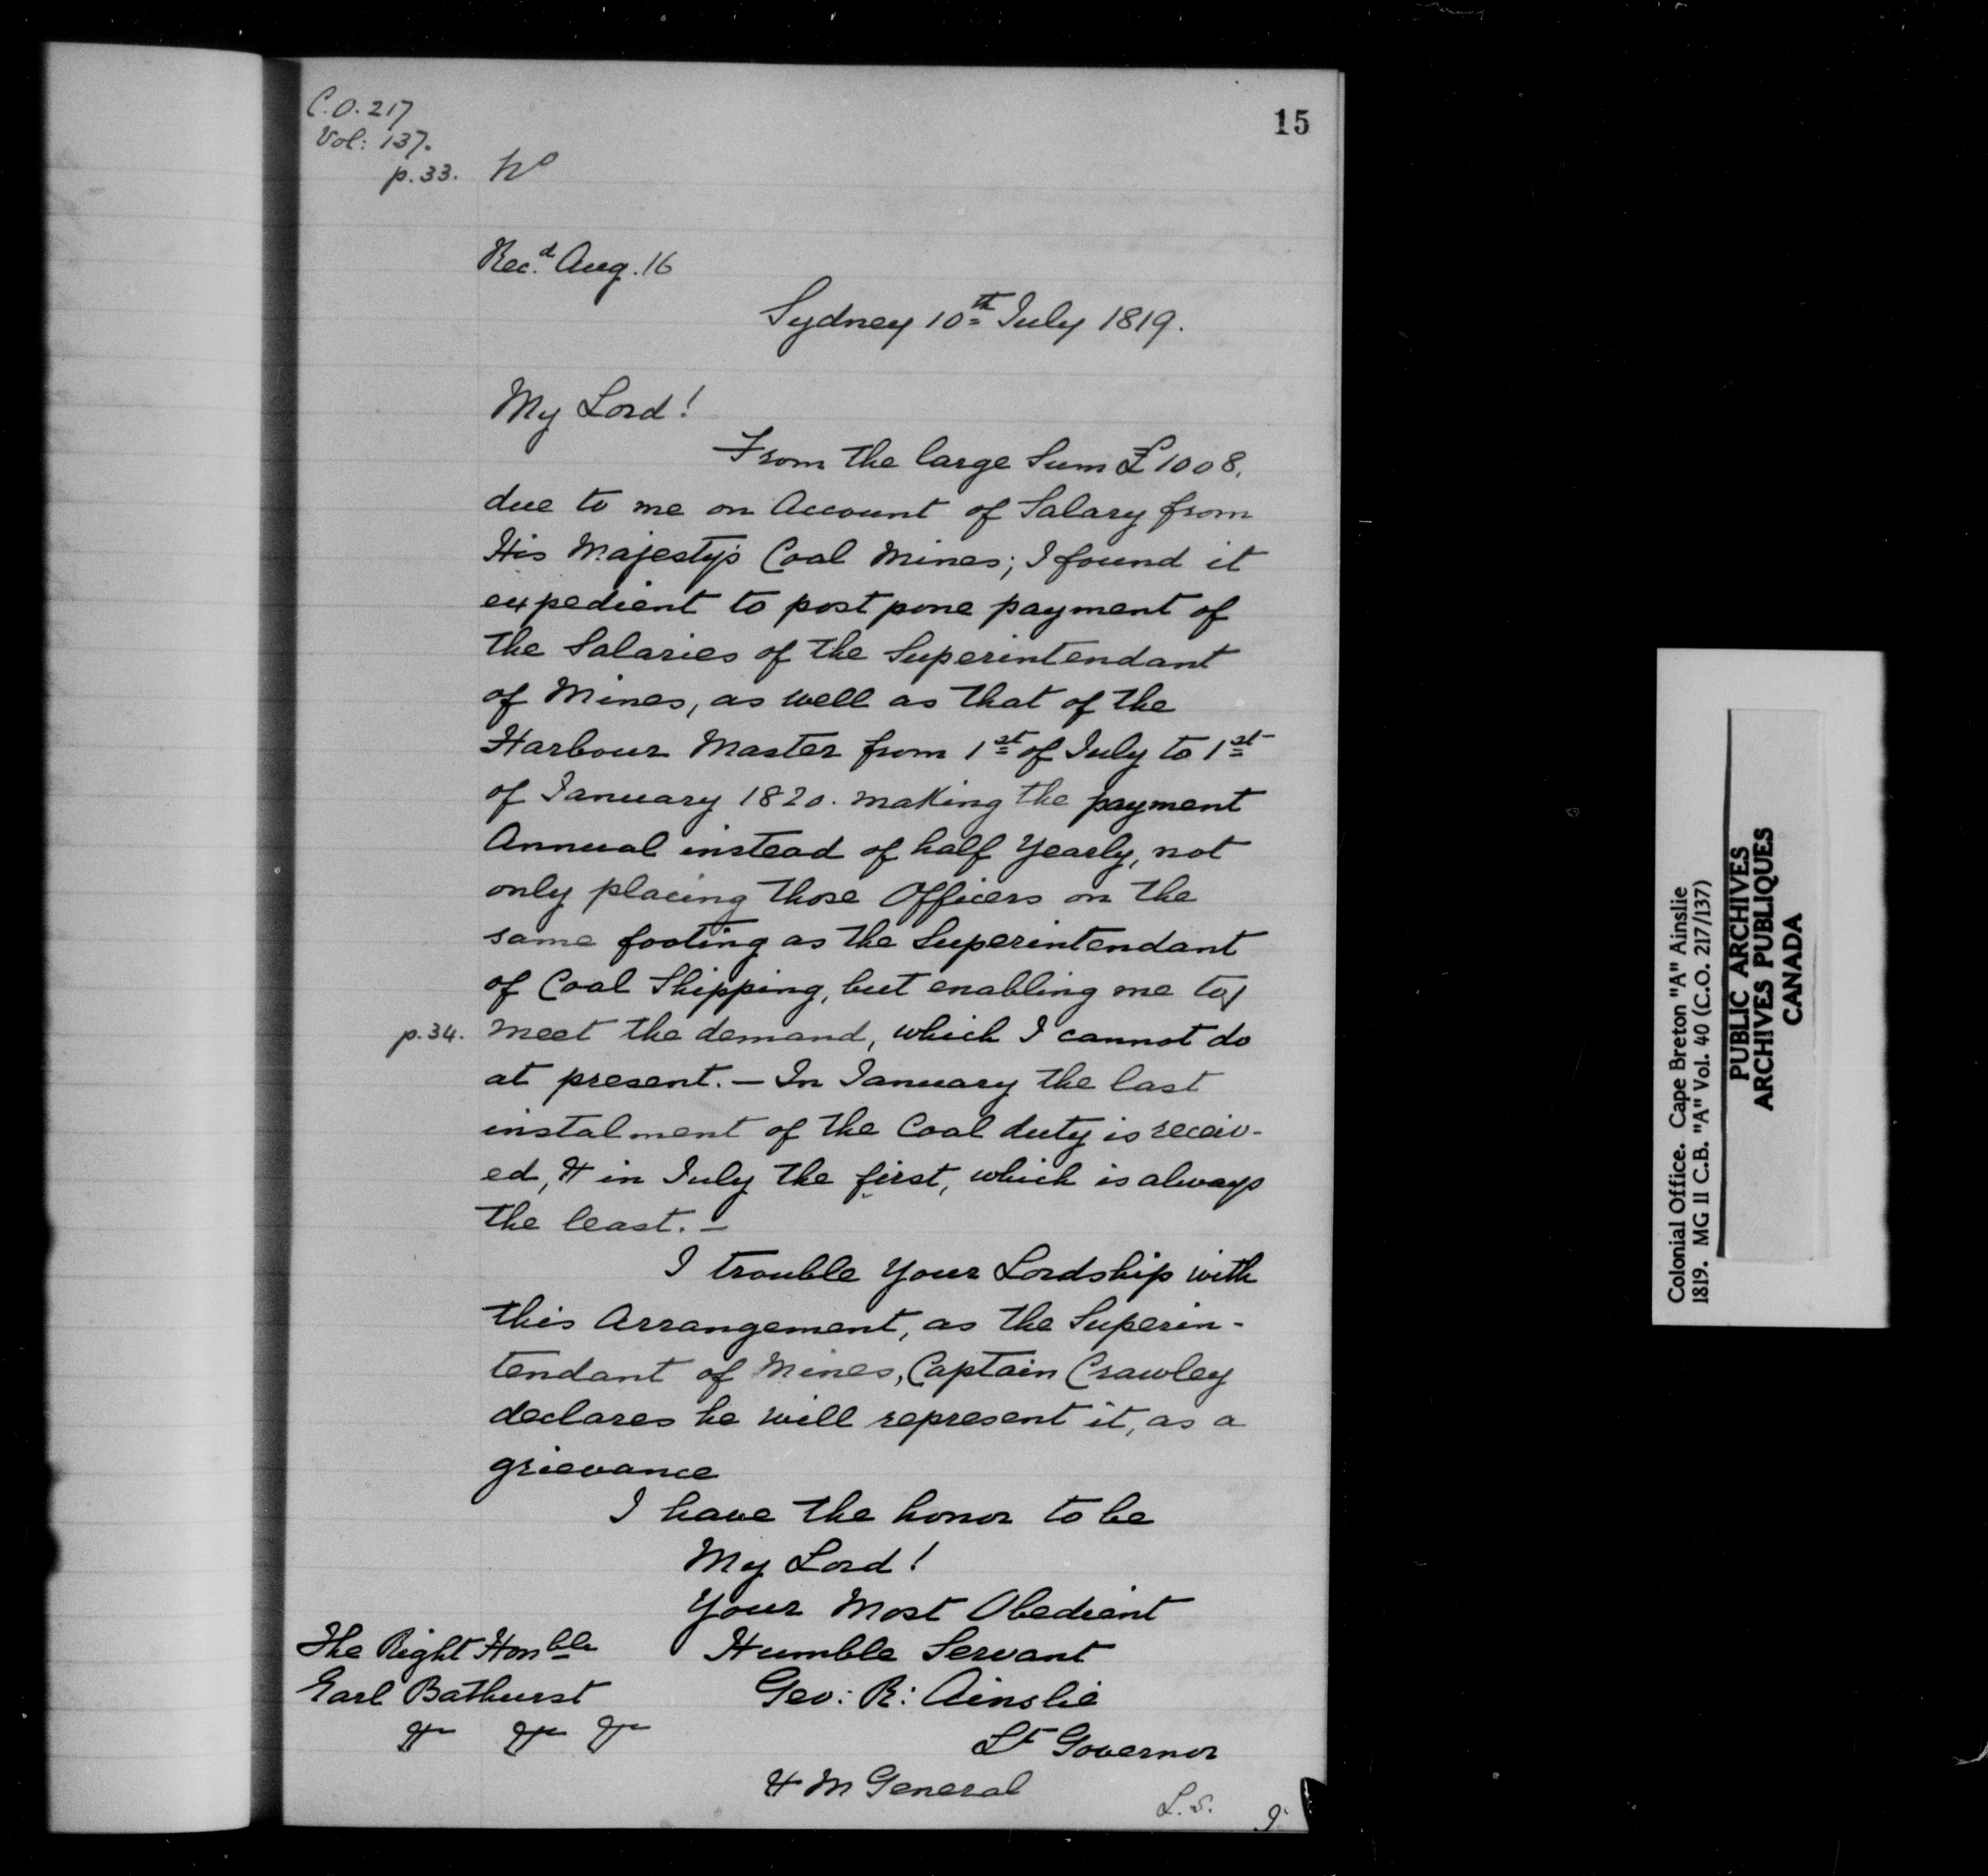 C.O. 217
Vol: 137.
p. 33. No
15
Rec.d Aug. 16
Sydney 10th July 1819.
My Lord!
From the large Sum £1008.
due to me on Account of Salary from
His Majesty's Coal Mines; I found it
expedient to postpone payment of
the Salaries of the Superintendant
of Mines, as well as that of the
Harbour Master from 1st of July to 1st
of January 1820. making the payment
Annual instead of half Yearly, not
only placing those Officers on the
same footing as the Superintendant
of Coal Shipping, but enabling me to/
p. 34. meet the demand, which I cannot do
at present. – In January the last
instalment of the Coal duty is receiv-
ed, & in July the first, which is always
the least. –
I trouble Your Lordship with
this Arrangement, as the Superin-
tendant of Mines, Captain Crawley
declares he will represent it, as a
grievance
I have the honor to be
My Lord!
Your Most Obedient
Humble Servant
Geo: R: Ainslie
Lt Governor
& M General
The Right Honble
Earl Bathurst
&c &c &c
L.S.
Colonial Office. Cape Breton "A" Ainslie
1819. MG II C.B. "A" Vol. 40 (C.O. 217/137)
PUBLIC ARCHIVES
ARCHIVES PUBLIQUES
CANADA